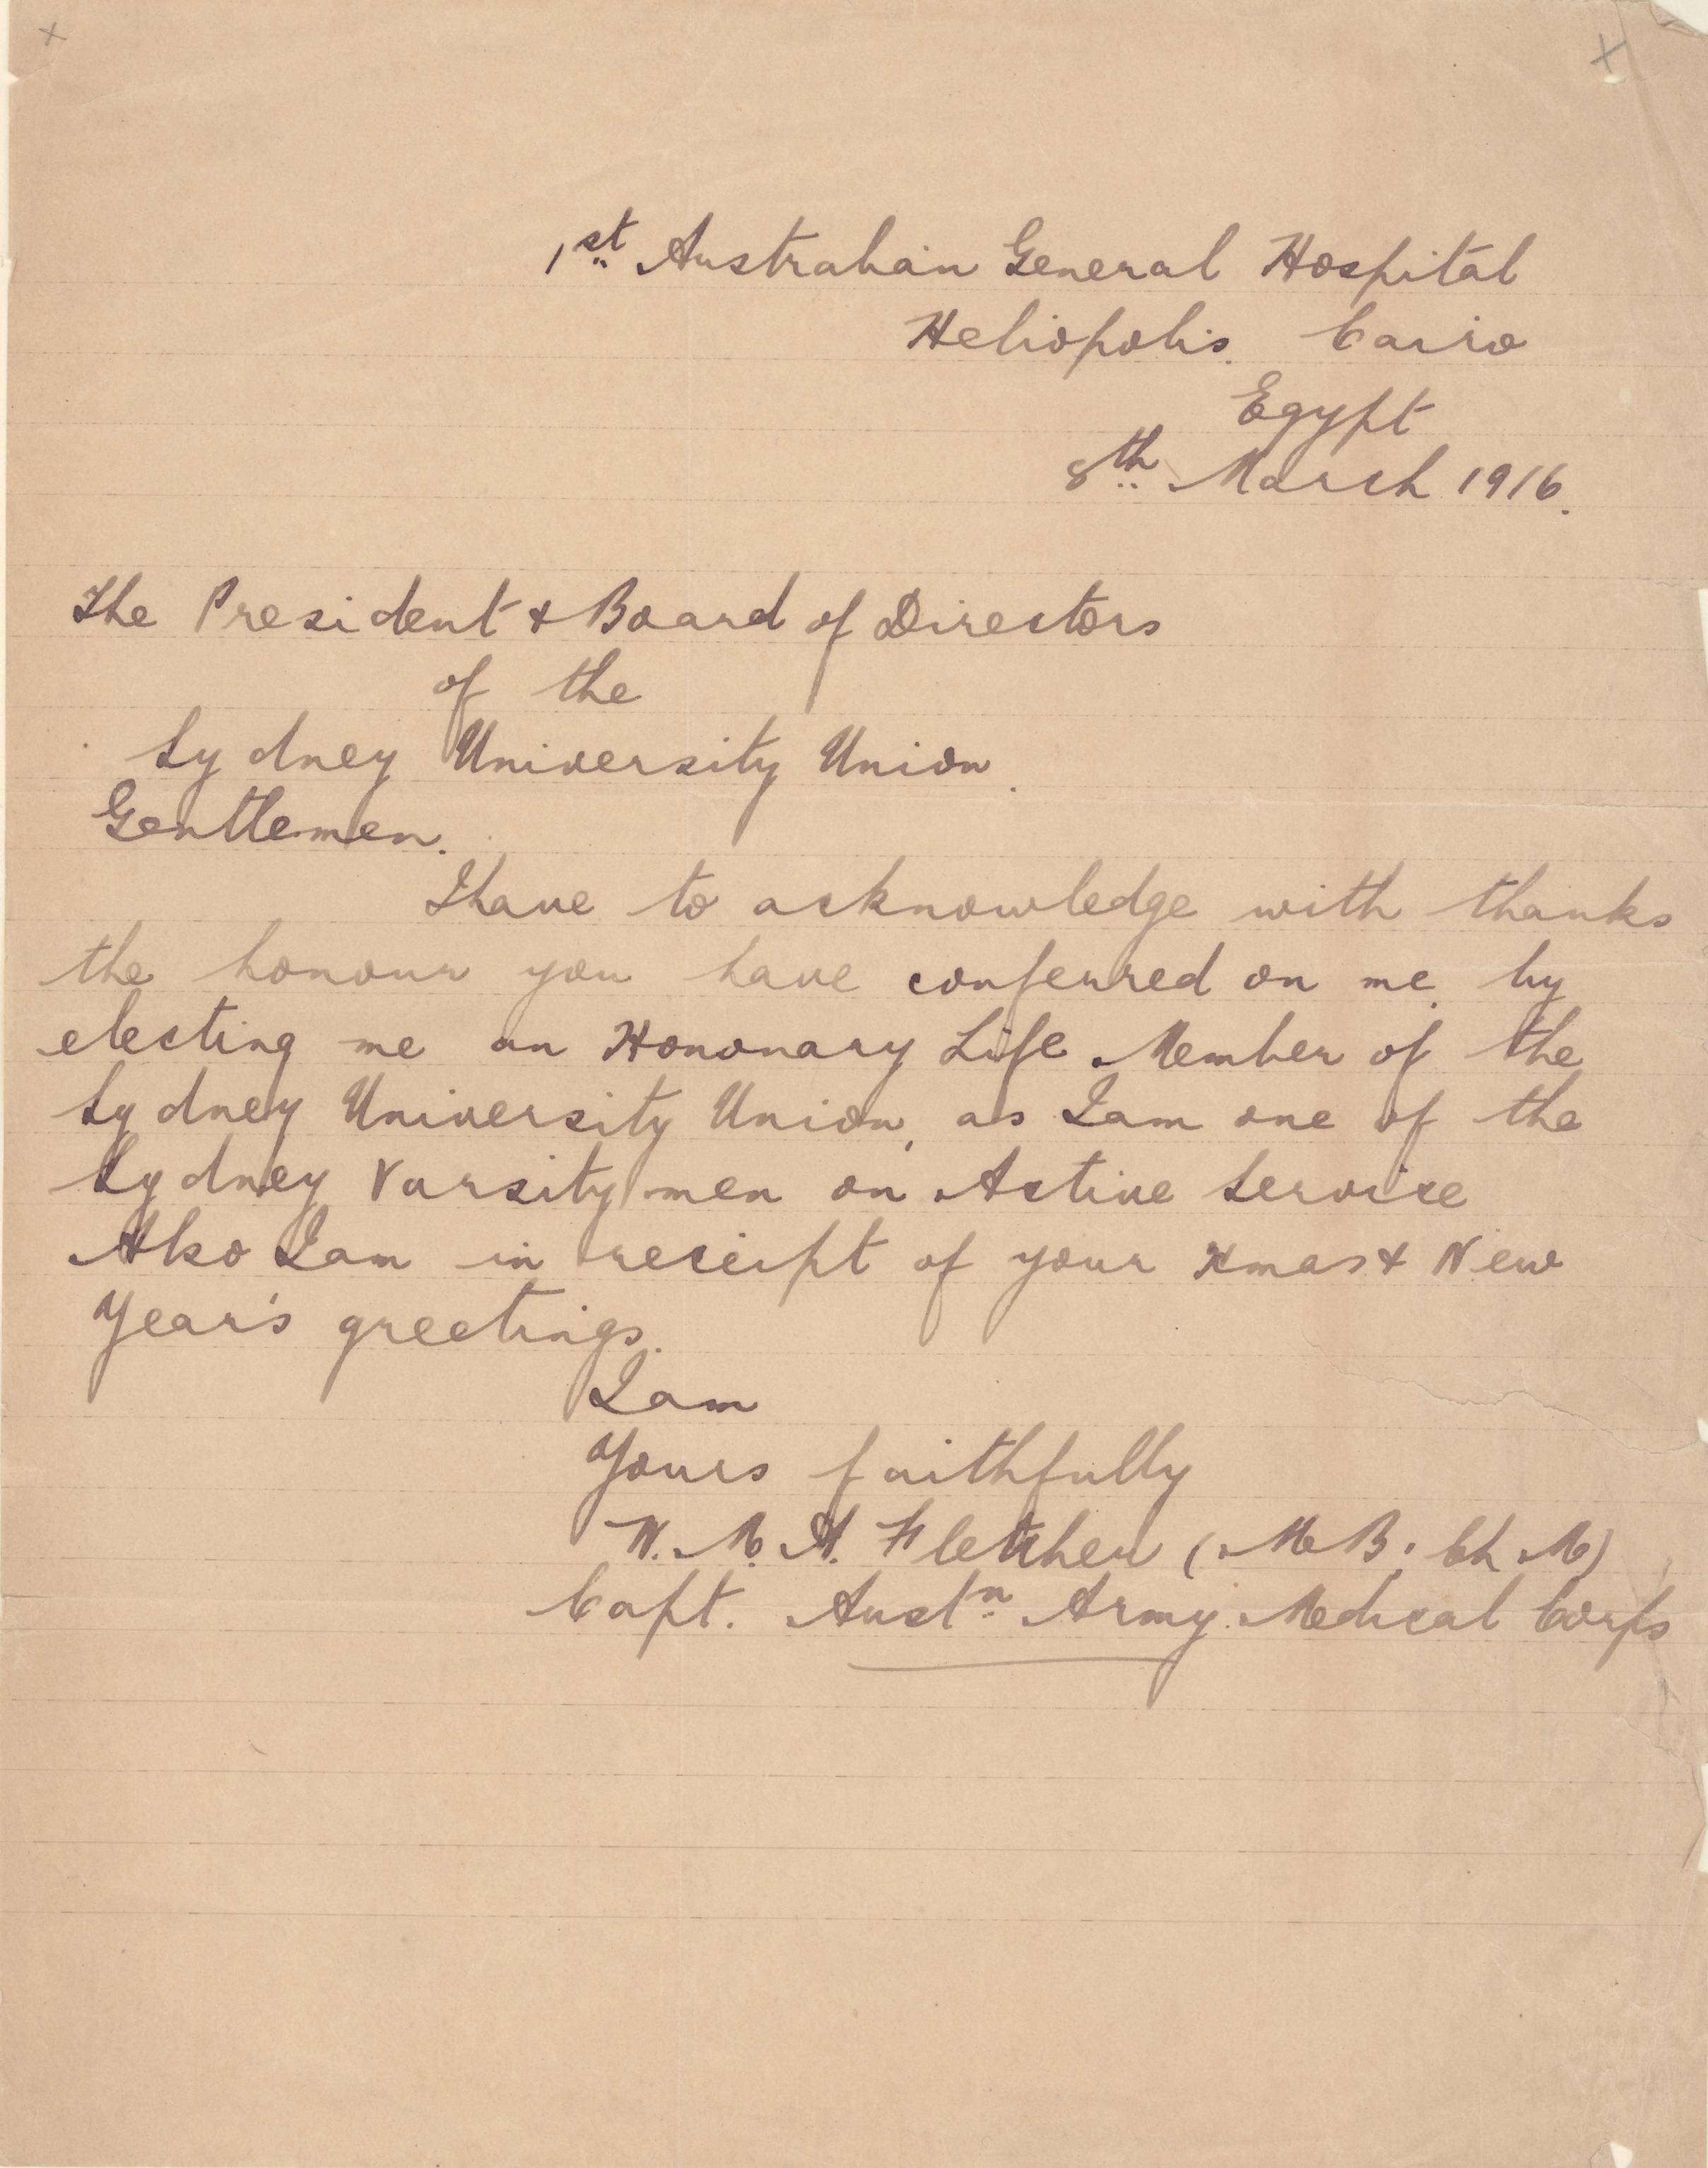 1st Australian General Hospital
Heliopolis. Cairo
Egypt
8th March 1916.
The President & Board of Directors
of the
Sydney University Union.
Gentlemen.
I have to acknowledge with thanks
the honour you have conferred on me. by
electing me an Honorary Life Member of the
Sydney University Union, as I am one of the
Sydney Varsity men on Active Service
Also I am in receipt of your Xmas & New
Year's greetings.
I am
Yours faithfully
W. M. A. Fletcher (M B. Ch M)
Capt. Austn Army Medical Corps